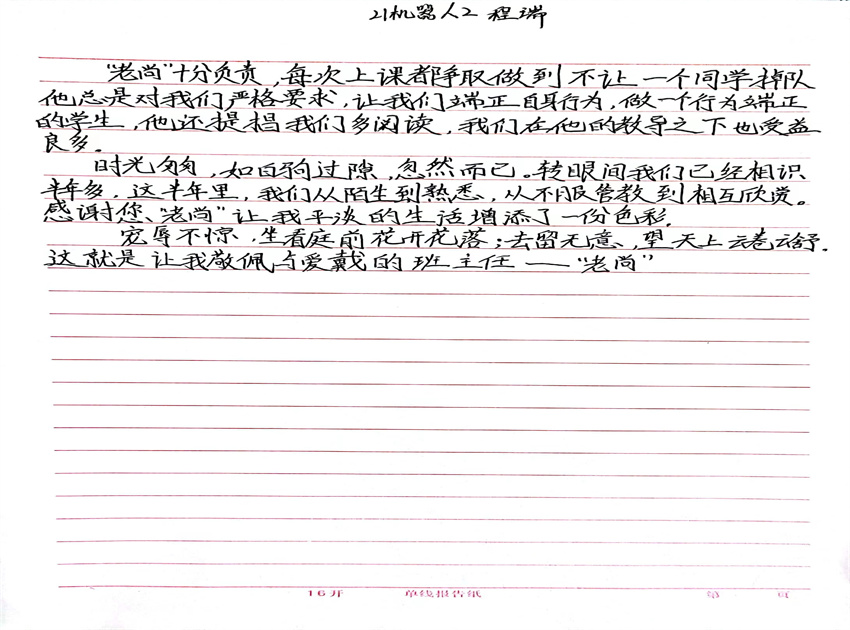 21机器人2 程端
"老尚"十分负责,每次上课都争取做到不让一个同学掉队
他总是对我们严格要求,让我们端正自身行为,做一个行为端正
的学生,他还提倡我们多阅读,我们在他的教导之下也受益
良多。
时光匆匆,如白驹过隙,忽然而已。转眼间我们已经相识
半年多,这半年里,我们从陌生到熟悉,从不服管教到相互欣赏。
感谢您、"老尚"让我平淡的生活增添了一份色彩.
宠辱不惊,坐看庭前花开花落;去留无意,望天上云卷云舒.
这就是让我敬佩与爱戴的班主任——"老尚"
16开 单线报告纸 第 页